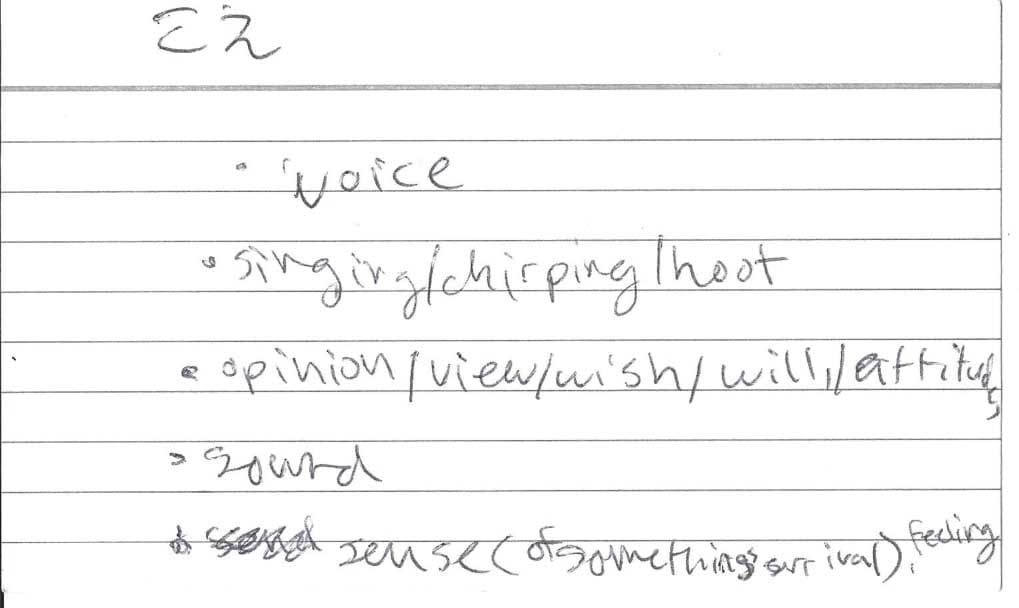 こえ
• voice
• singing/chirping/hoot
• opinion/view/wish/will/attitude
• sound
• sense (of something's arrival), feeling